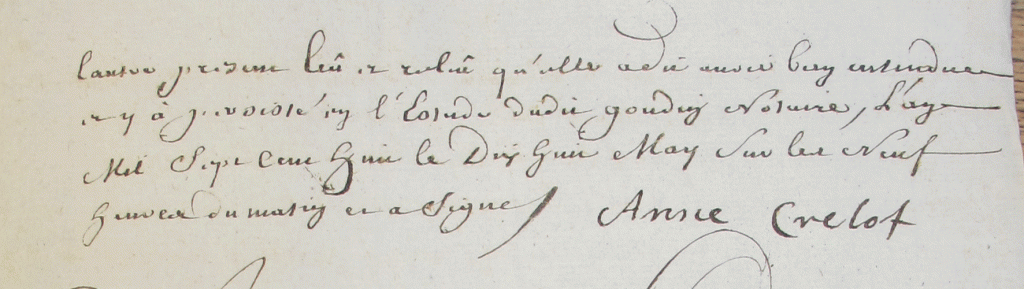 lautre present leü et releü qu'elle a dit avoir bien entendue
et y à persisté en l'Estude dudit goudin Notaire, L'an
Mil Sept Cent huit le Dix huit May Sur les Neuf
heures du matin et a Signé Anne Crelot